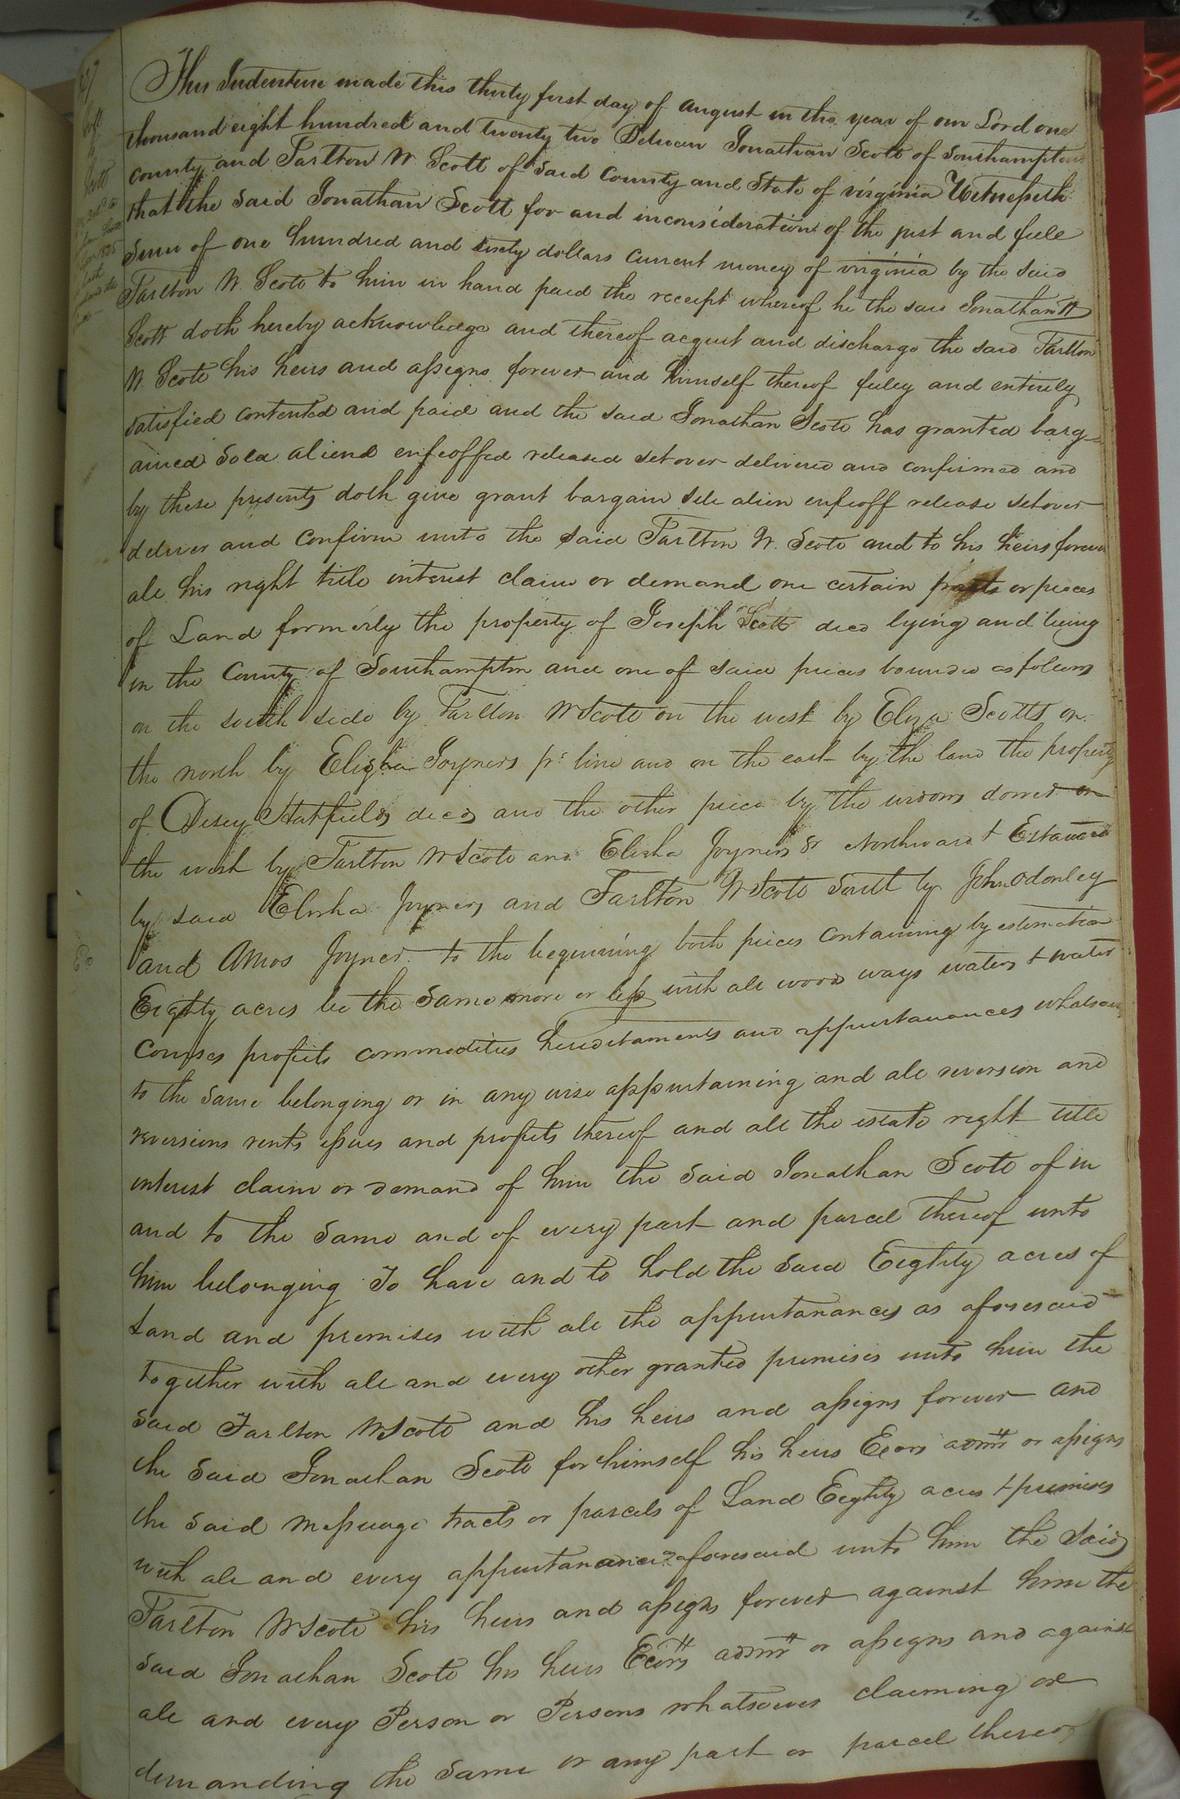 This Indenture made this thirty first day of August in the year of our Lord one
thousand eight hundred and twenty two Between Jonathan Scott of Southampton
county and Tarlton W Scott of said County and State of virginia Witnesseth
that the said Jonathan Scott for and inconsideration of the just and full
Sum of one hundred and sixty dollars current money of virginia by the said
Tarlton W. Scott to him in hand paid the receipt whereof he the said Jonathan
Scott doth hereby acknowledge and thereof acquit and discharge the said Tarlton
W. Scott his heirs and assigns forever and himself thereof fuley and entirely
satisfied contented and paid and the said Jonathan Scott has granted barg-
ained Sold aliend enfeoffed released setover delivered and confirmed and
by these presents doth give grant bargain sell alien enfeoff release setover
deliver and confirm unto the said Tarlton W. Scott and to his heirs forever
all his right title interest claim or demand one certain or peaces
of Land formerly the property of Joseph Scott decd lying and being
in the County of Southampton and one of said pieces bounded as follows
on the south side by Tarlton W Scott on the west by Eliza Scotts on
the north by Elisha Joyners pr line and on the east by the land the property
of Hatfields decd and the other piece by the widows dower on
the west by Tarlton W Scott and Elisha Joyners & Northward & Estaward
by said Elisha Joyners and Tarlton W Scott South by John odonley
and Amos Joyner to the beginning both pieces containing by estimation
Eighty acres be the same more or less with all wood ways waters & water
courses profits commodities hereditaments and appurtanances whatsoever
to the same belonging or in any wise appurtaining and all reversion and
reversions rents issues and profits thereof and all the estate right title
interest claim or demand of him the said Jonathan Scott of in
and to the same and of every part and parcel thereof unto
him belonging To have and to hold the said Eighty acres of
Land and premises with all the appurtanances as aforesaid
together with all and every other granted premises unto him the
said Tarlton W Scott and his heirs and assigns forever and
the said Jonathan Scott for himself his heirs Exors admrs or assigns
the said messuage tracts or parcels of Land Eighty acres & premises
with all and every appurtanances aforesaid unto him the said
Tarlton W Scott his heirs and assigns forever against him the
said Jonathan Scott his heirs Exors admrs or assigns and against
all and every Person or Persons whatsoever claiming or
demanding the same or any part or parcel thereof